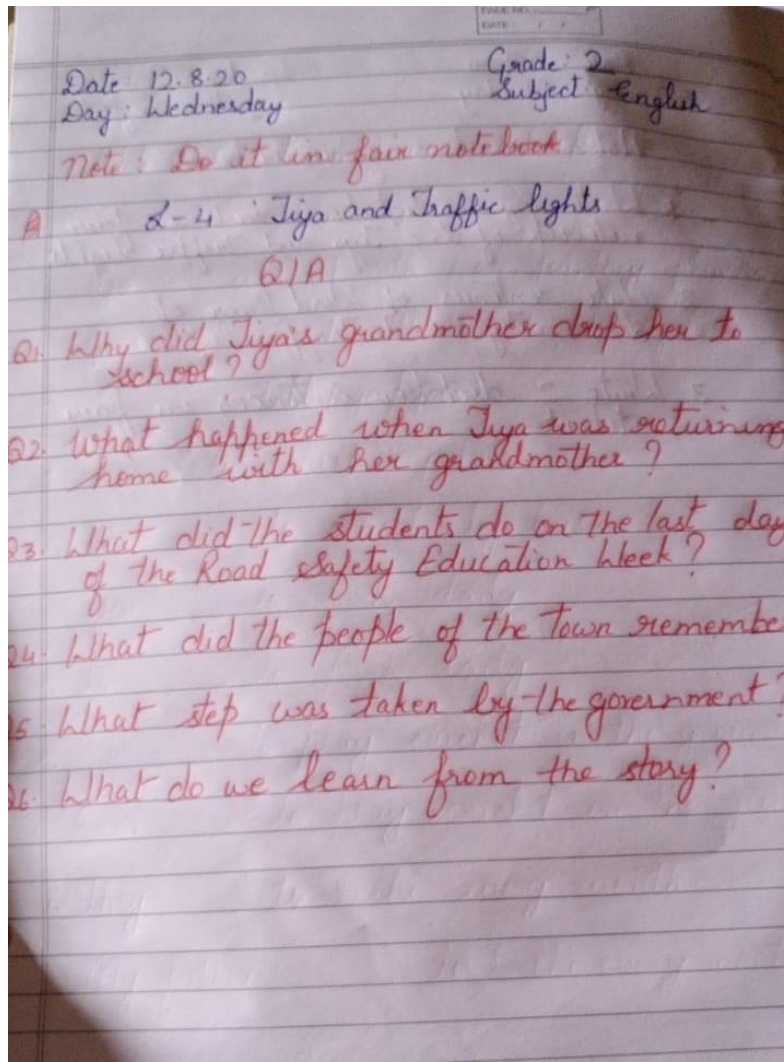 PAGE NO.
DATE : / /
Date : 12.8.20
Grade : 2
Day : Wednesday
Subject : English
Note : Do it in fair notebook
A L-4 : Jiya and Traffic lights
Q/A
Q1. Why did Jiya's grandmother drop her to
school ?
Q2. What happened when Jiya was returning
home with her grandmother ?
Q3. What did the students do on the last day
of the Road Safety Education Week ?
Q4. What did the people of the Town remembe
Q5. What step was taken by the government?
Q6. What do we learn from the story ?